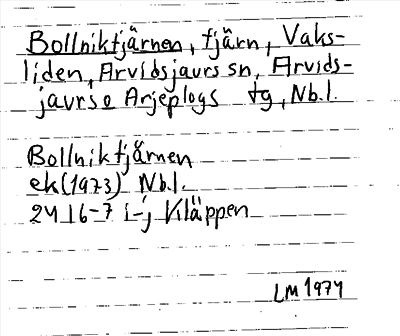 Bollniktjärnen, tjärn, Vaks-
liden, Arvidsjaurs sn, Arvids-
jaurs o Arjeplogs tg, Nb.l.
Bollniktjärnen
ek(1973) Nb.l.
24 I 6-7 i-j Kläppen
LM 1974